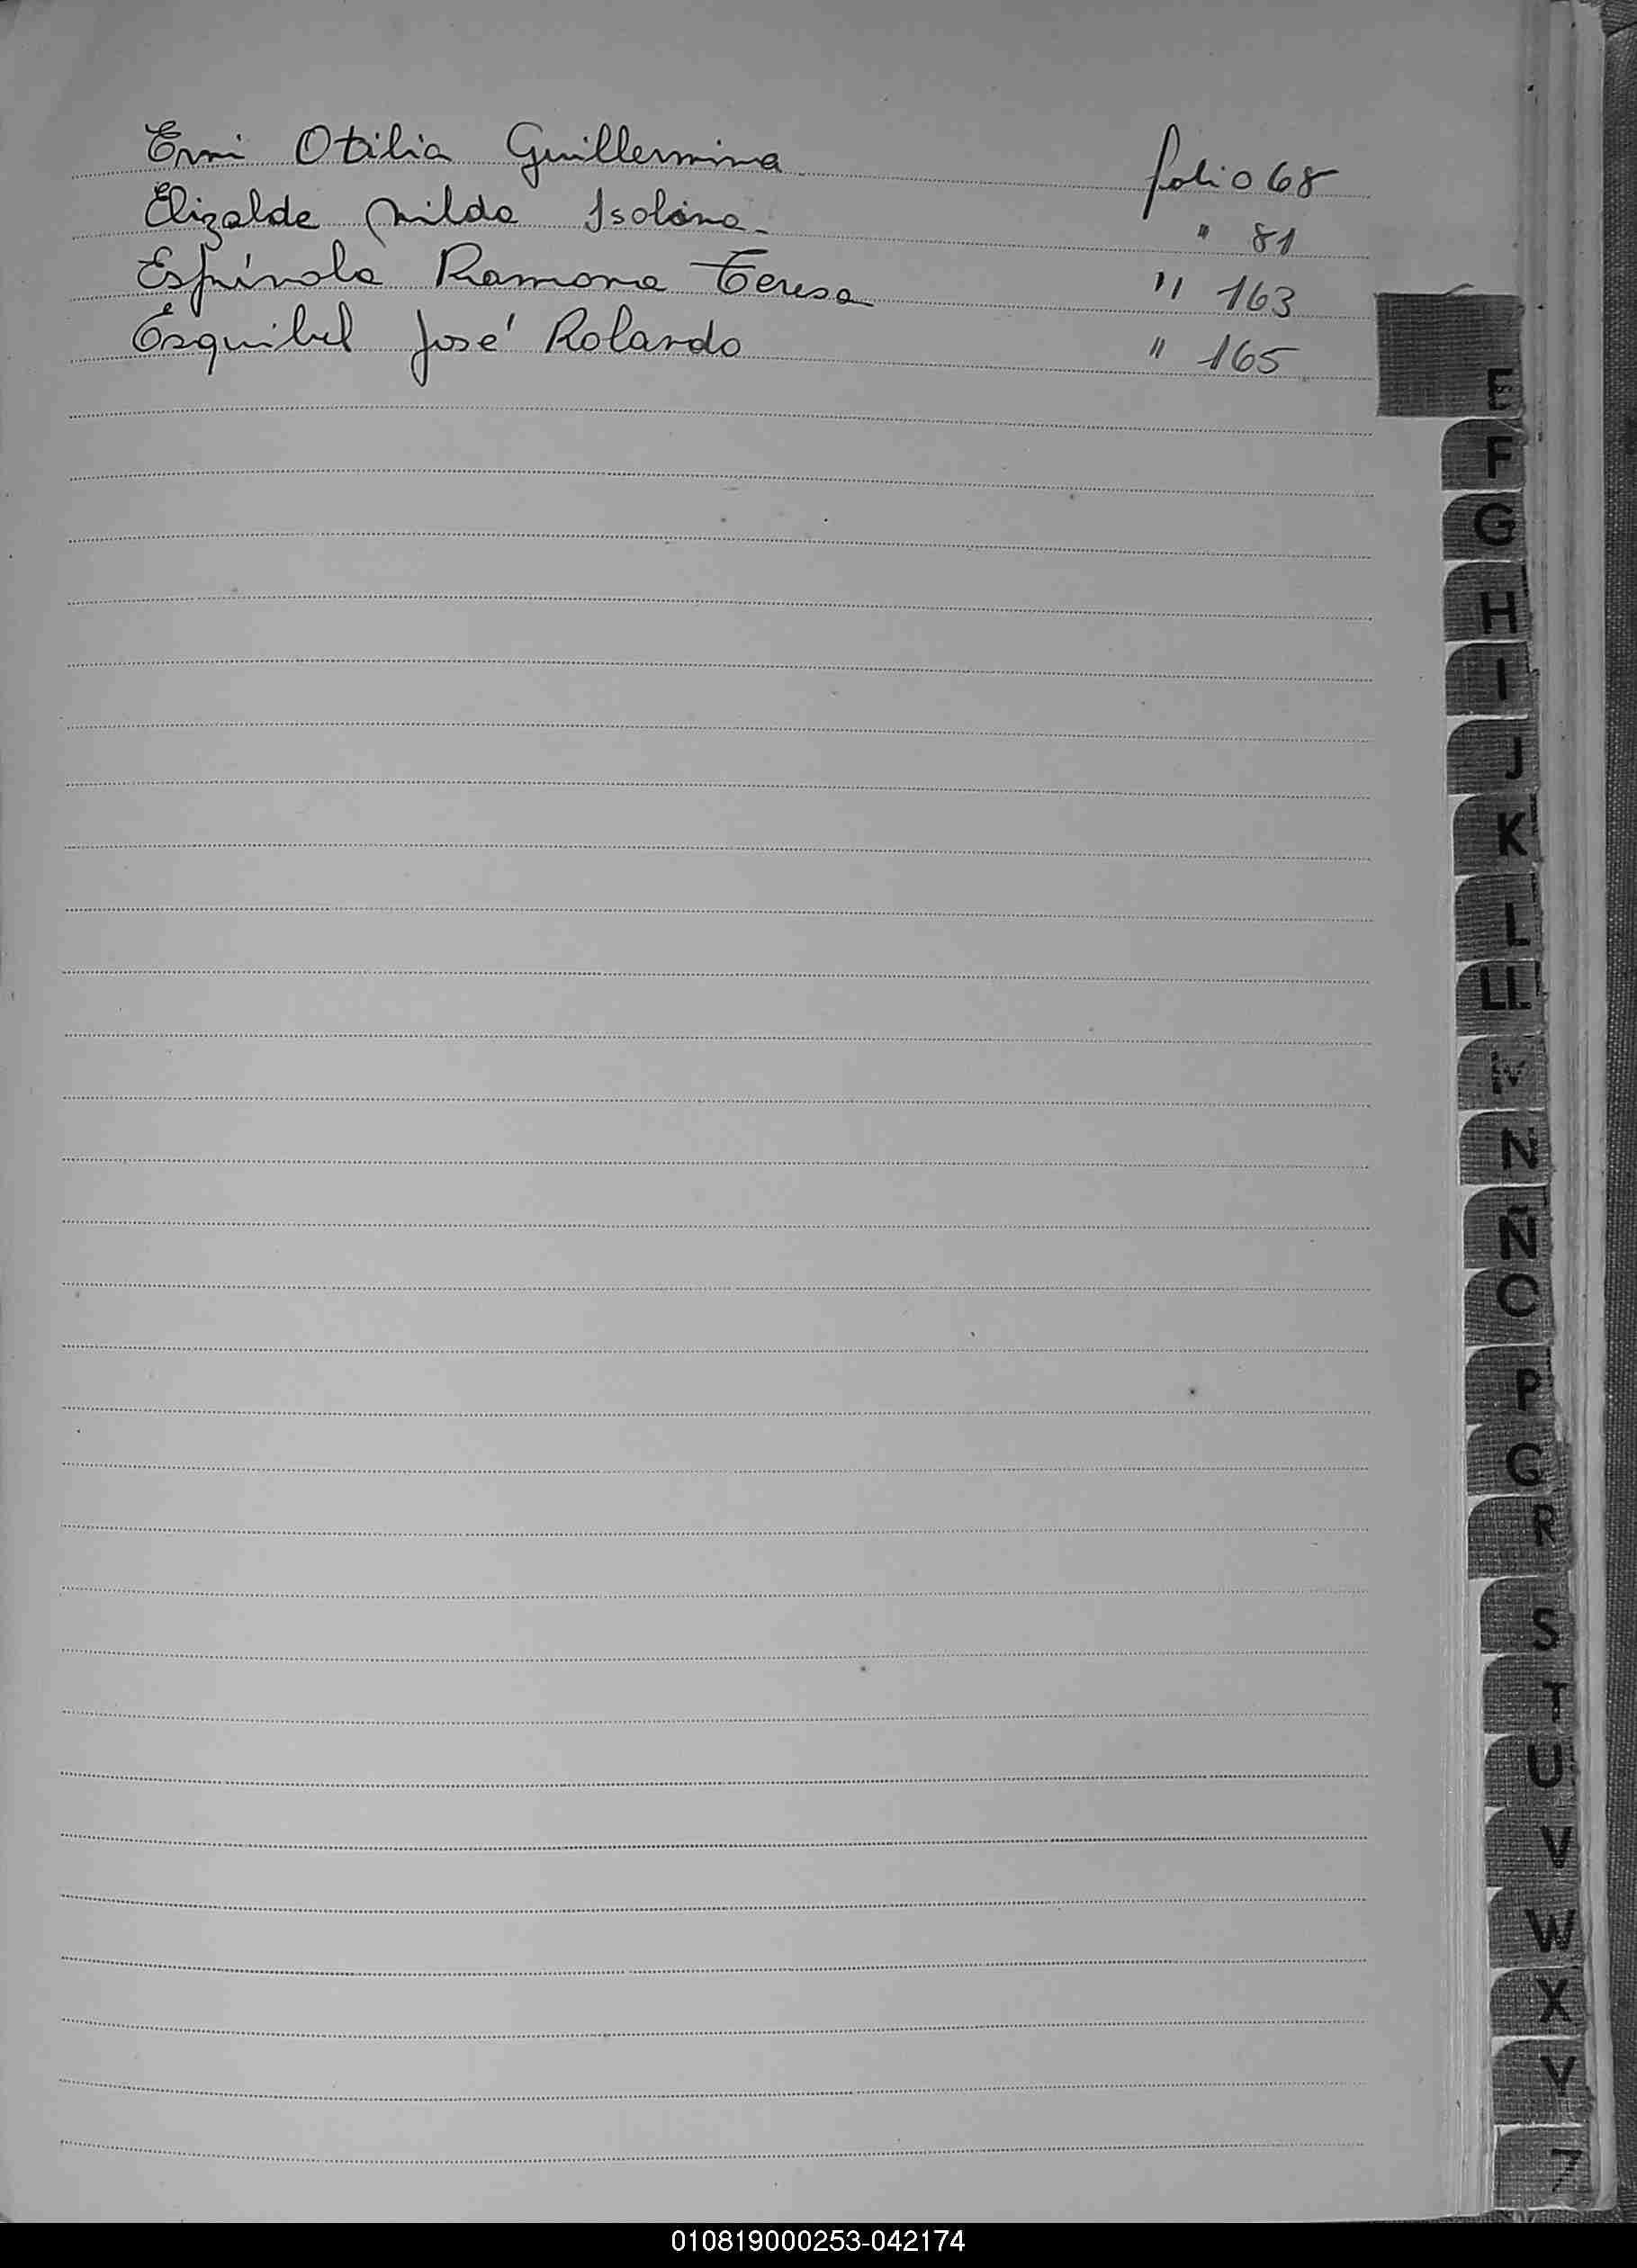 Erni Otilia Guillermina folio 68
Elizalde Nilda Isolina. " 81
Espínola Ramona Teresa " 163
Esquibel José Rolando " 165
E
F
G
H
I
J
K
L
LL
M
N
Ñ
O
P
Q
R
S
T
U
V
W
X
Y
Z
010819000253-042174